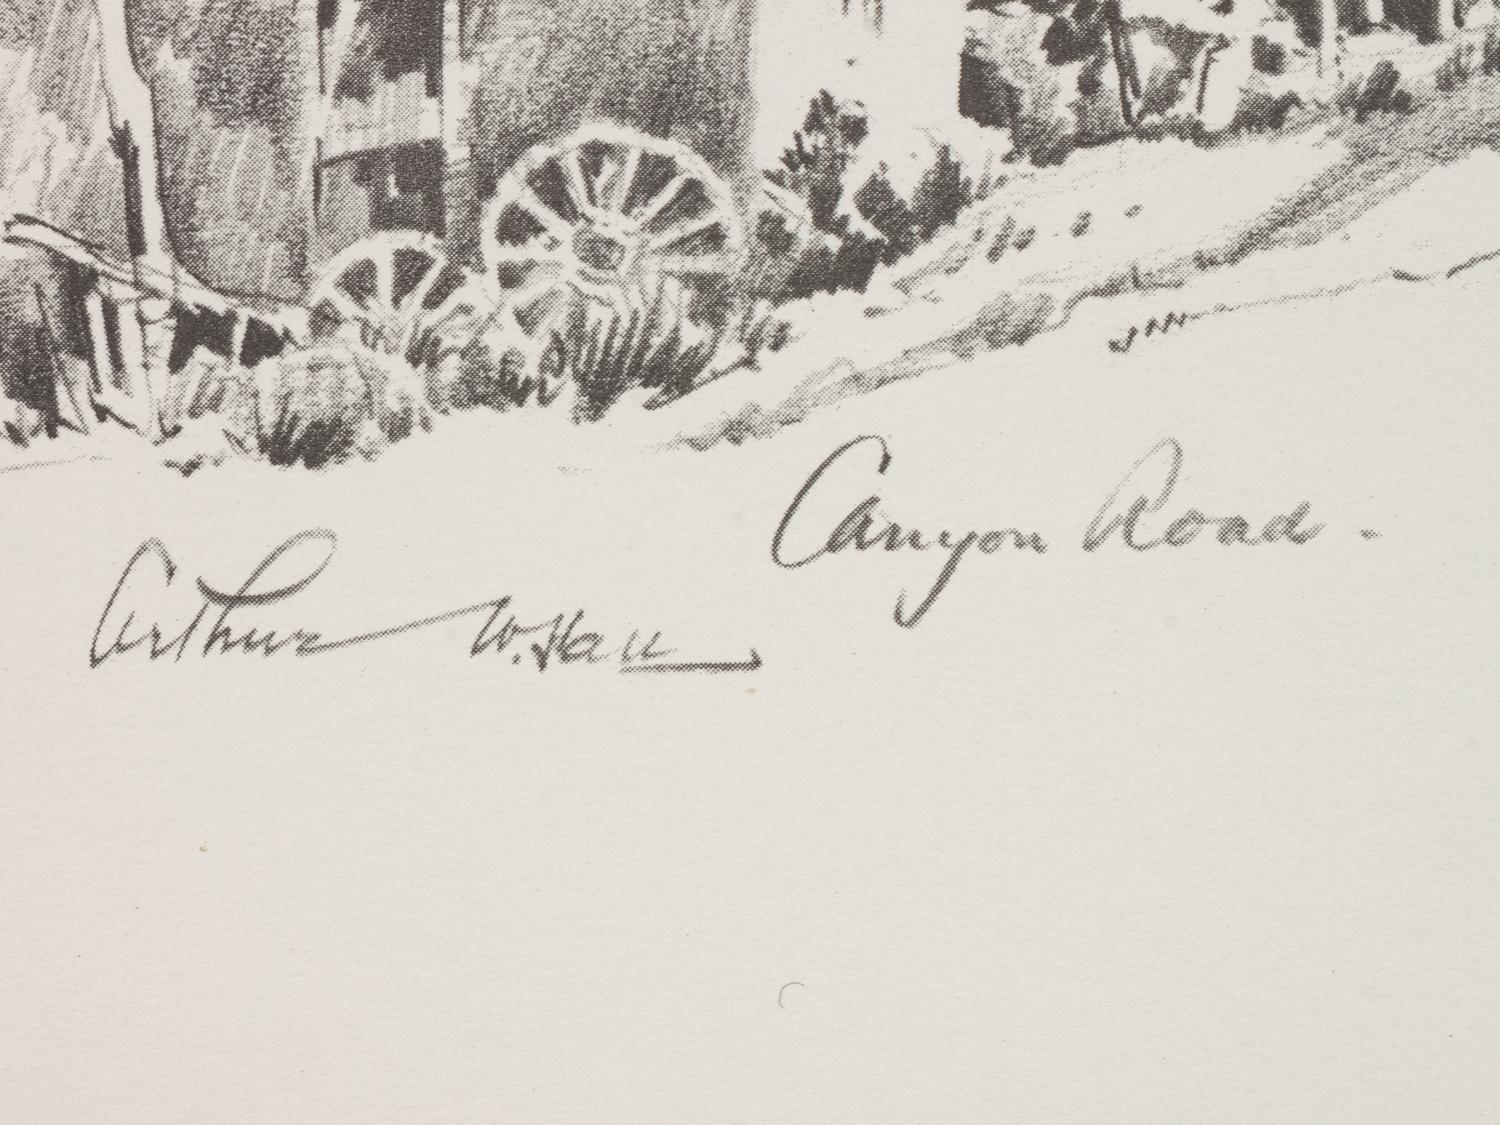 Canyon Road.
Arthur W. Hall